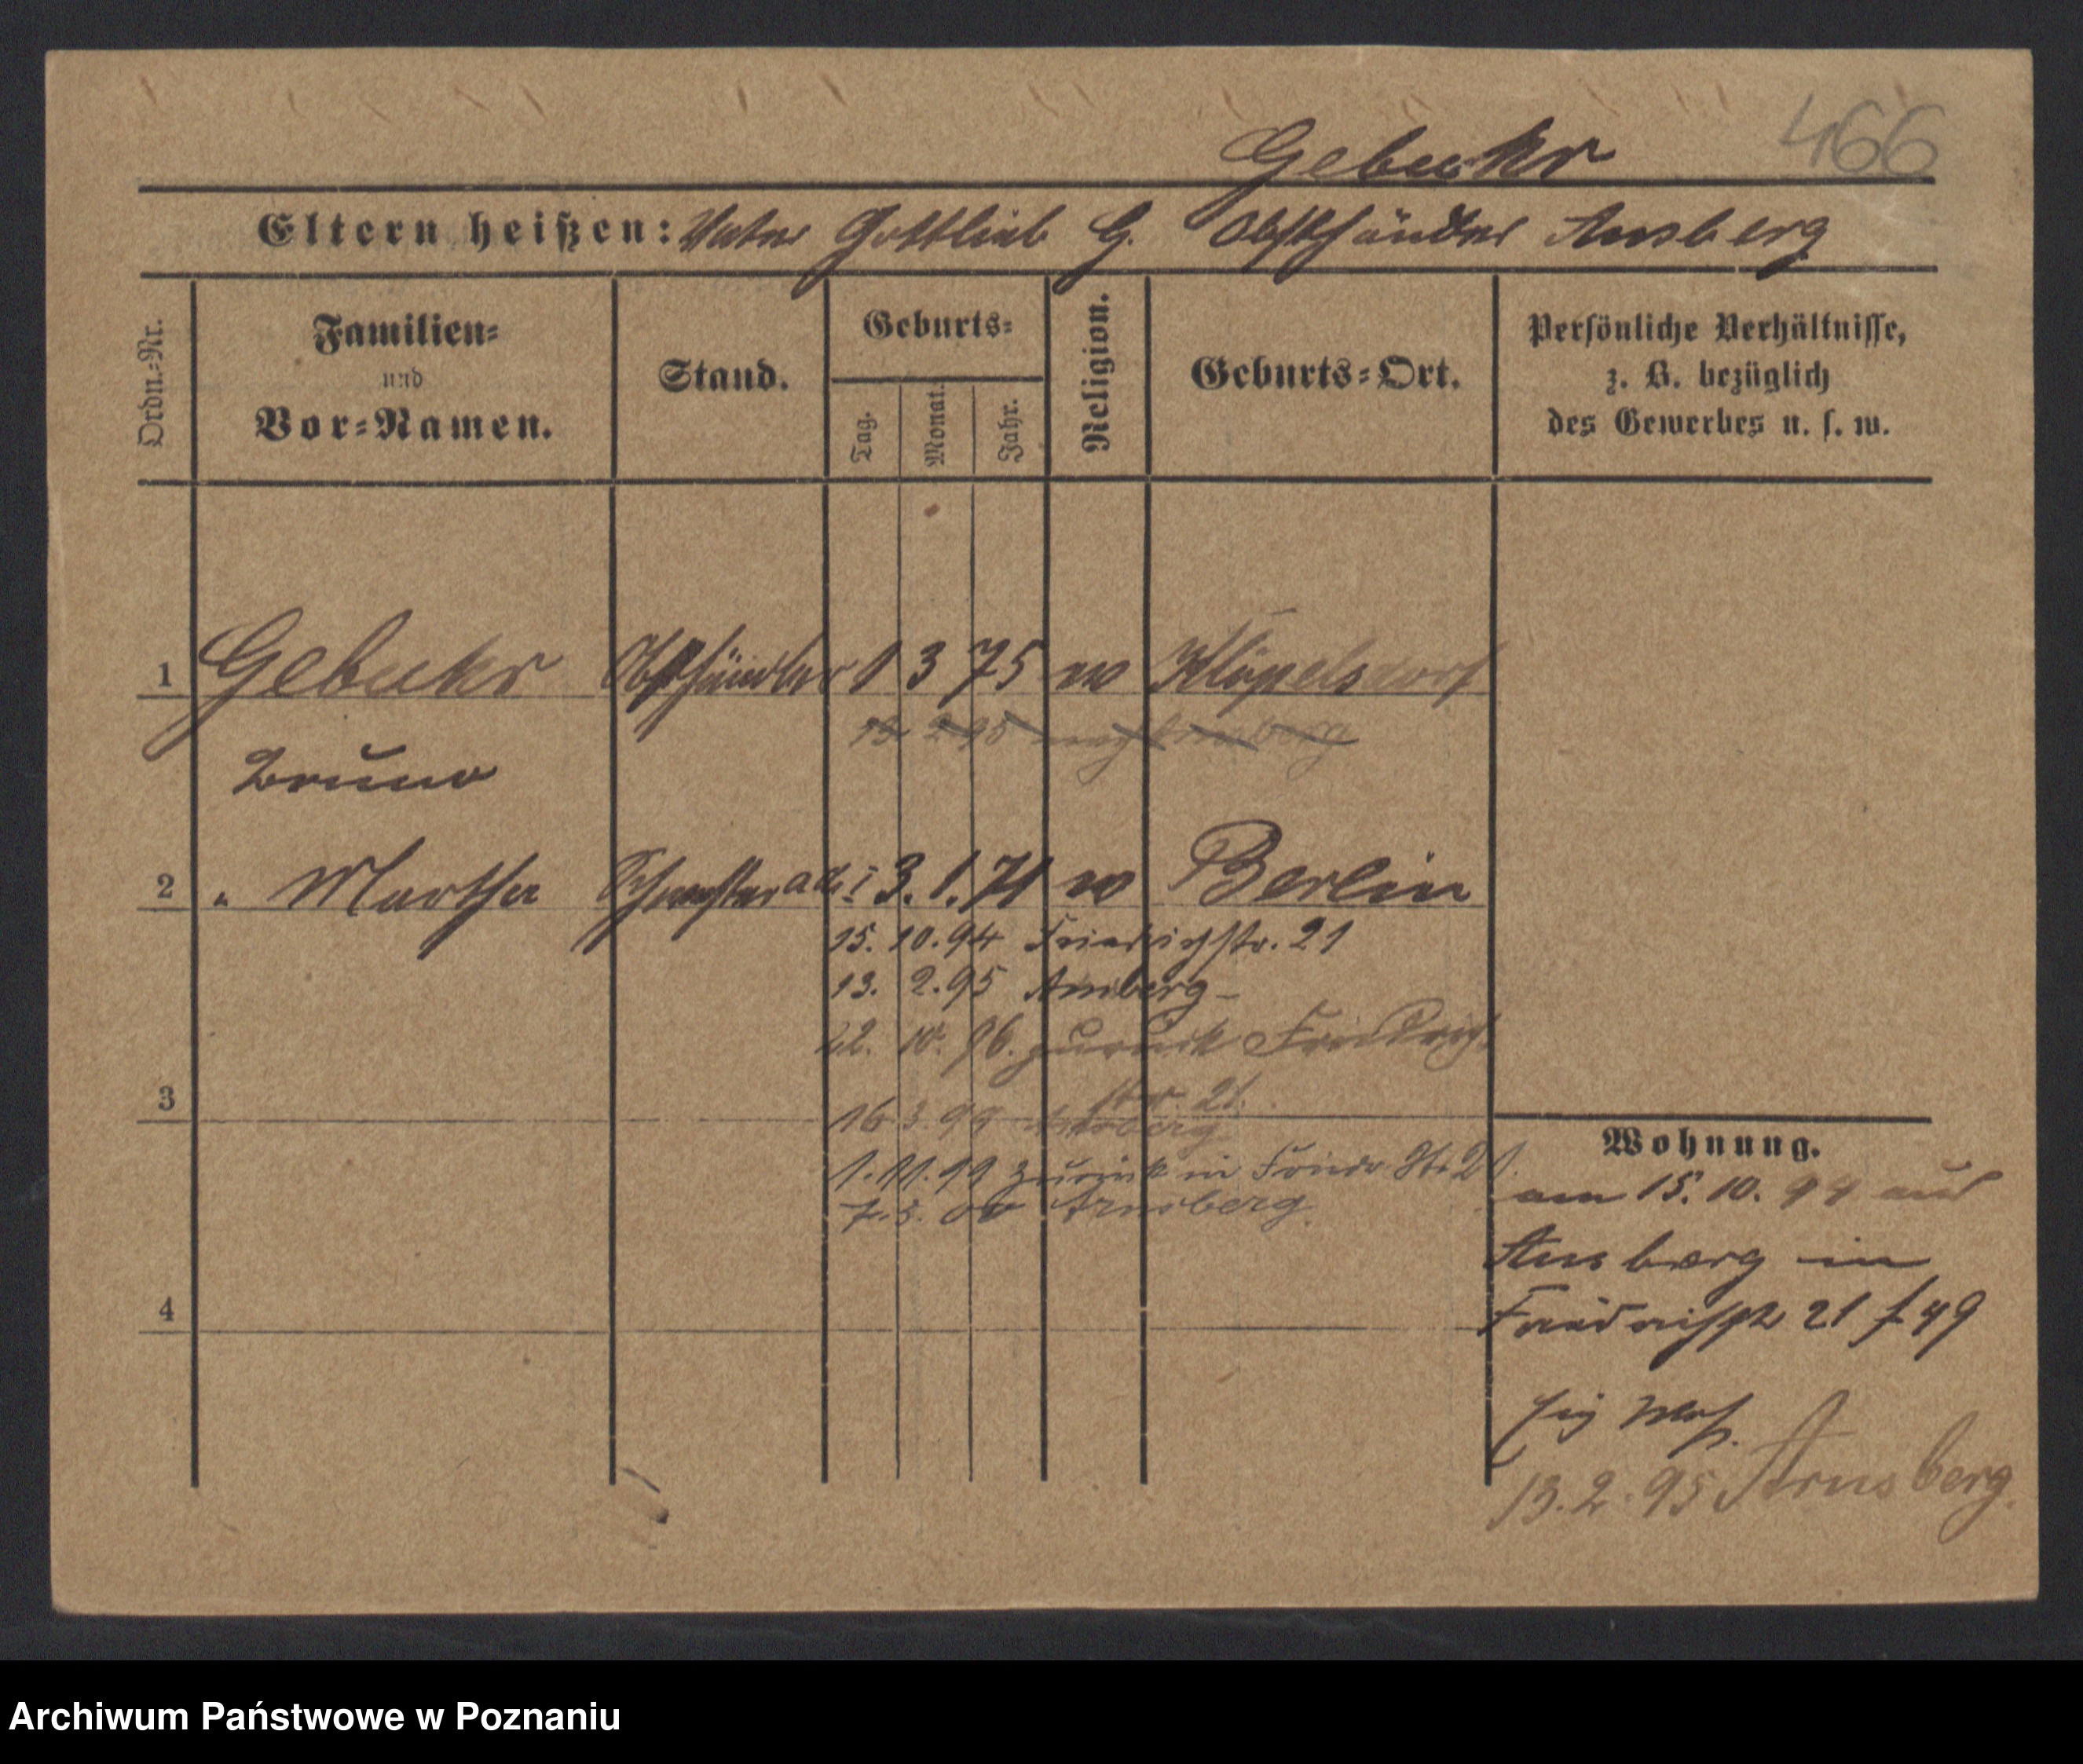 466
Gebukr
Eltern heißen: Vater Gottlieb G. Obsthändler Arnsberg
Ordn.-Nr.
Familien-
und
Vor-Namen.
Stand.
Geburts-
Tag.
Monat.
Jahr.
Religion.
Geburts-Ort.
Persönliche Verhältnisse,
z. B. bezüglich
des Gewerbes u. s. w.
1 Gebukr Obsthändler 1 3 75
13 2 95 nach Arnsberg
Bruno
2 " Martha Schwester 3. 1. 71 Berlin
15. 10. 94 Friedrichstr. 21
13. 2. 95 Arnsberg
22. 10. 96. zurück Friedrich
str. 21.
3
16 3 99 Arnsberg
1. 11. 99 zurück in Friedr Str 21.
7. 5. 00 Arnsberg.
4
Wohnung.
am 15. 10. 94 aus
Arnsberg in
Friedrichstr 21
13. 2. 95 Arnsberg.
Archiwum Państwowe w Poznaniu